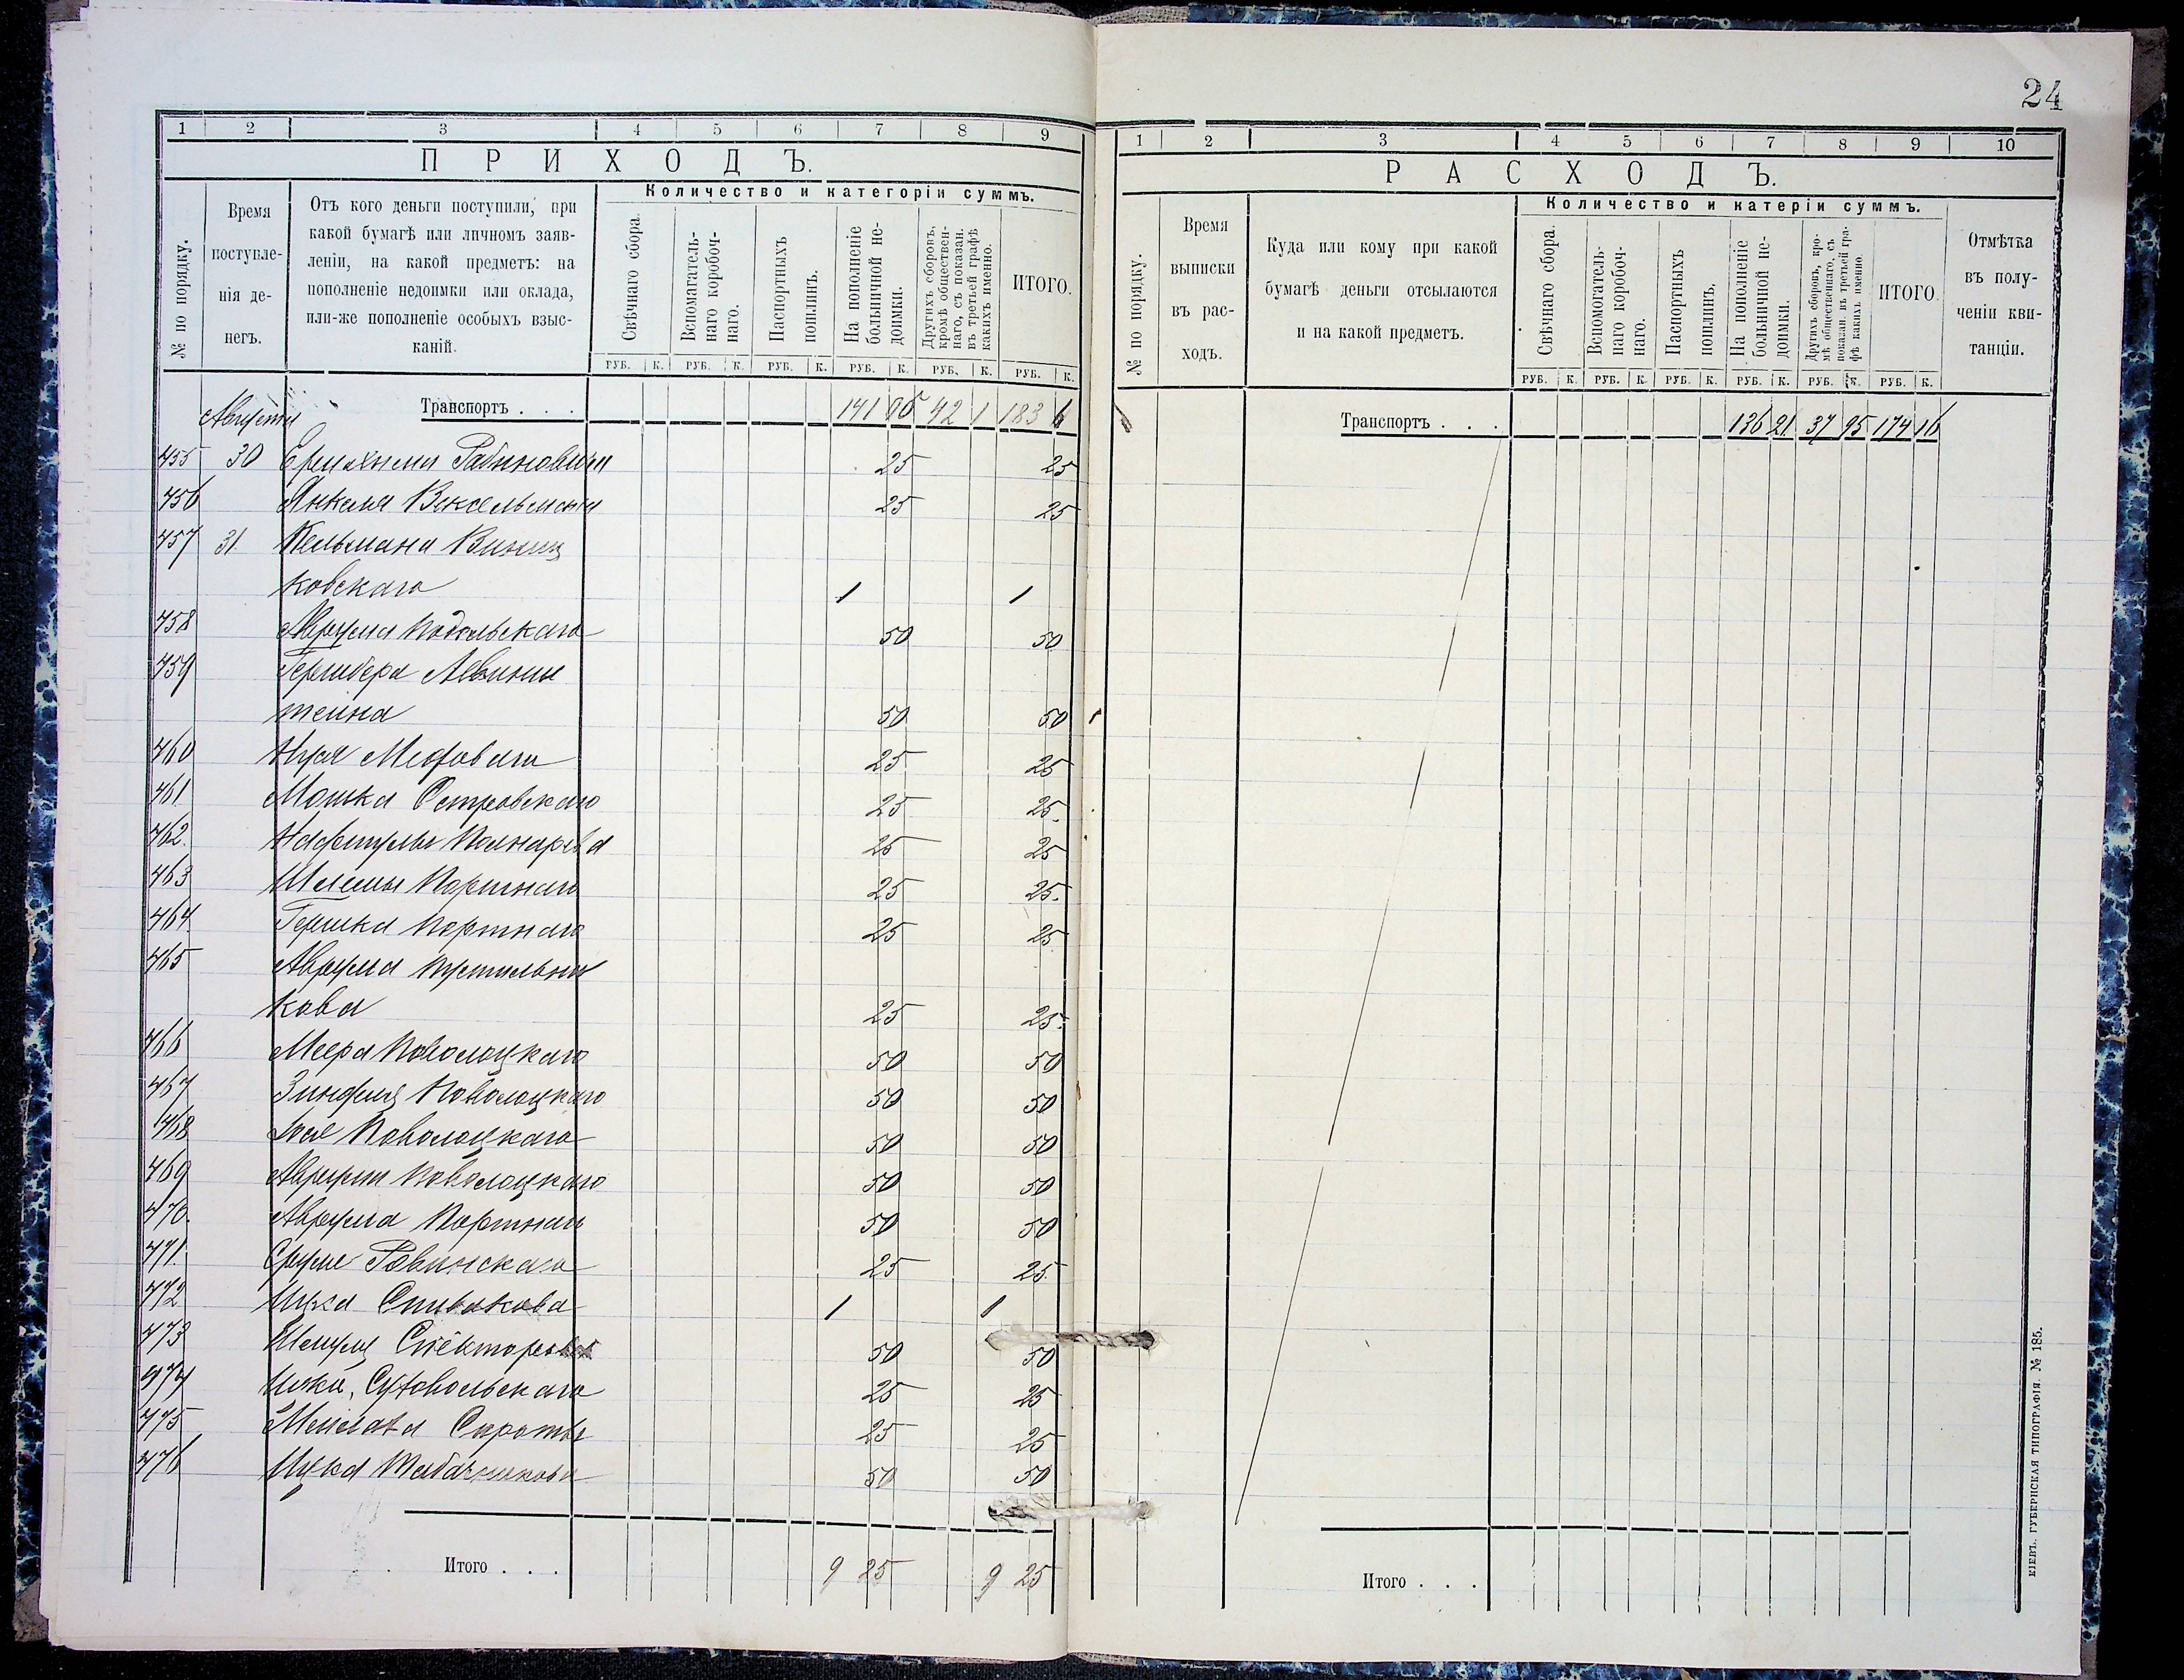 24
1 2 3 4 5 6 7 8 9
ПРИХОДЪ.
№ по порядку.
Время поступле-
нія де-
негъ.
Отъ кого деньги поступили, при
какой бумагѣ или личномъ заяв-
леніи, на какой предметъ: на
пополненіе недоимки или оклада,
или-же пополненіе особыхъ взыс-
каній.
Количество и категоріи суммъ.
Свѣчнаго сбора.
Вспомагатель-
наго коробоч-
наго.
Паспортныхъ
пошлинъ.
На пополненіе
больничной не-
доимки.
Другихъ сборовъ,
кромѣ обществен-
наго, съ показан.
въ третьей графѣ
какихъ именно.
ИТОГО.
РУБ. К. РУБ. К. РУБ. К. РУБ. К. РУБ. К. РУБ. К.
Августа Транспортъ . . . 141 05 42 1 183 6
455 30 Рабиновича 25 25
456 Янкеля Вексельмана 25 25
457 31 Кельмана
ковскаго 1 1
458 Аврума Подольскаго 50 50
459
50 50
460 25 25
461 Мошка Островскаго 25 25
462 Нафтулы Понарева 25 25
463 Шлемы Портнаго 25 25
464 Гершка Портнаго 25 25
465 Аврума Пустильни
кова 25 25
466 Меера Поволоцкаго 50 50
467 Поволоцкаго 50 50
468 Поволоцкаго 50 50
469 Аврума Поволоцкаго 50 50
470 Аврума Портнаго 50 50
471 Сруля Ровинскаго 25 25
472 Спивакова 1 1
473 50 50
474 25 25
475 Сироты 25 25
476 Ицка Табачникова 50 50
Итого . . . 9 25 9 25
1 2 3 4 5 6 7 8 9 10
РАСХОДЪ.
№ по порядку.
Время
выписки
въ рас-
ходъ.
Куда или кому при какой
бумагѣ деньги отсылаются
и на какой предметъ.
Количество и катеріи суммъ.
Свѣчнаго сбора.
Вспомогатель-
наго коробоч-
наго.
Паспортныхъ
пошлинъ.
На пополненіе
больничной не-
доимки.
Другихъ сборовъ, кро-
мѣ общественнаго, съ
показан. въ третьей гра-
фѣ какихъ именно.
ИТОГО.
Отмѣтка
въ полу-
ченіи кви-
танціи.
РУБ. К. РУБ. К. РУБ. К. РУБ. К. РУБ. К. РУБ. К.
Транспортъ . . . 136 21 37 95 174 16
Итого . . .
КІЕВЪ. ГУБЕРНСКАЯ ТИПОГРАФІЯ. № 185.